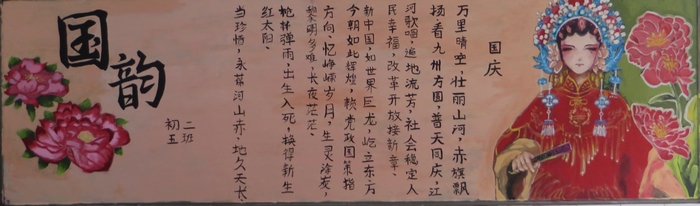 国韵
初五二班
国庆
万里晴空，壮丽山河，赤旗飘
扬看九州方圆，普天同庆，江
河歌唱，遍地流芳，社会稳定人
民幸福，改革开放接新章、
新中国，如世界巨龙，屹立东方
今朝如此辉煌，赖党政国策指
方向、忆峥嵘岁月，生灵涂炭，
黎明多难，长夜茫茫、
枪林弹雨，出生入死，换得新生
红太阳、
当珍惜，永葆河山赤、地久天长、